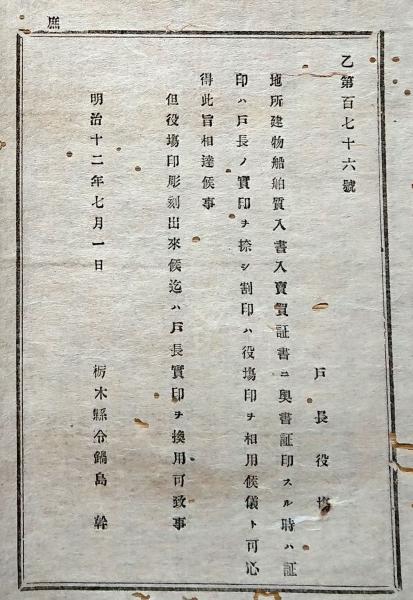 庶
乙第百七十六號
戸長役塲
地所建物船舶質入書入賣買証書ニ奥書証印スル時ハ証
印ハ戸長ノ實印ヲ捺シ割印ハ役塲印ヲ相用候儀ト可心
得此旨相達候事
但役塲印彫刻出來候迄ハ戸長實印ヲ換用可致事
明治十二年七月一日
栃木縣令鍋島幹